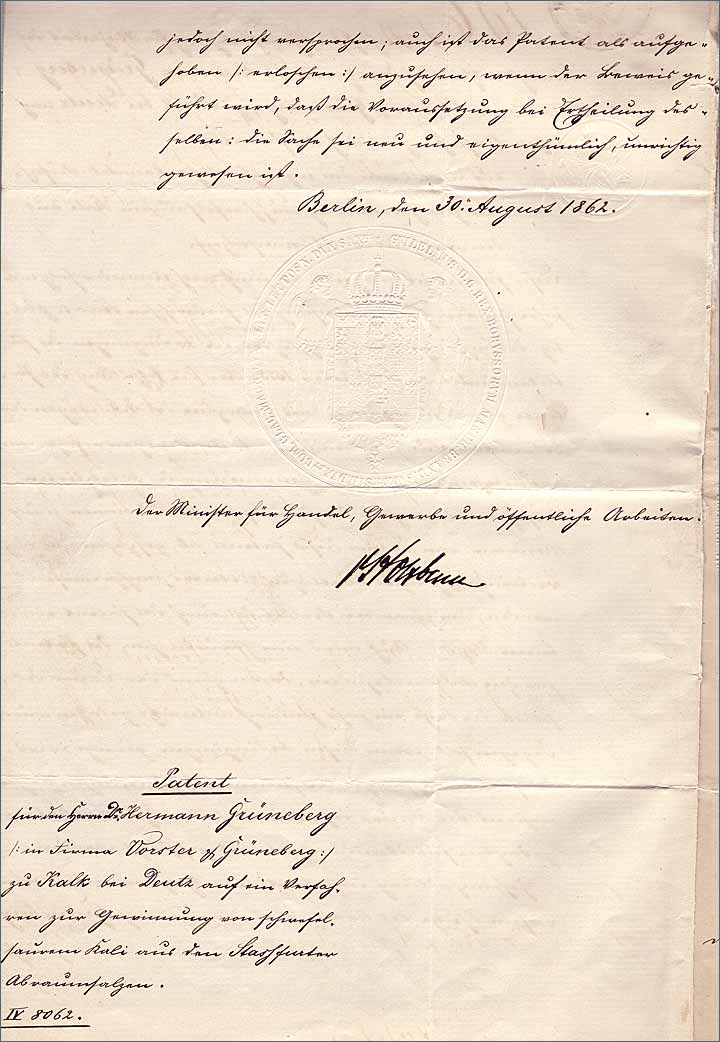 jedoch nicht versprochen; auch ist das Patent als aufge-
hoben /: erloschen :/ anzusehen, wenn der Beweis ge-
führt wird, daß die Voraussetzung bei Ertheilung des-
selben: die Sache sei neu und eigenthümlich, unrichtig
gewesen ist.
Berlin, den 30. August 1862.
Der Minister für Handel, Gewerbe und öffentliche Arbeiten.
Patent
für den Herrn Dr. Hermann Grüneberg
/: in Firma Vorster & Grüneberg :/
zu Kalk bei Deutz auf ein Verfah-
ren zur Gewinnung von schwefel-
saurem Kali aus den Stassfurter
Abraumsalzen.
IV 8062.